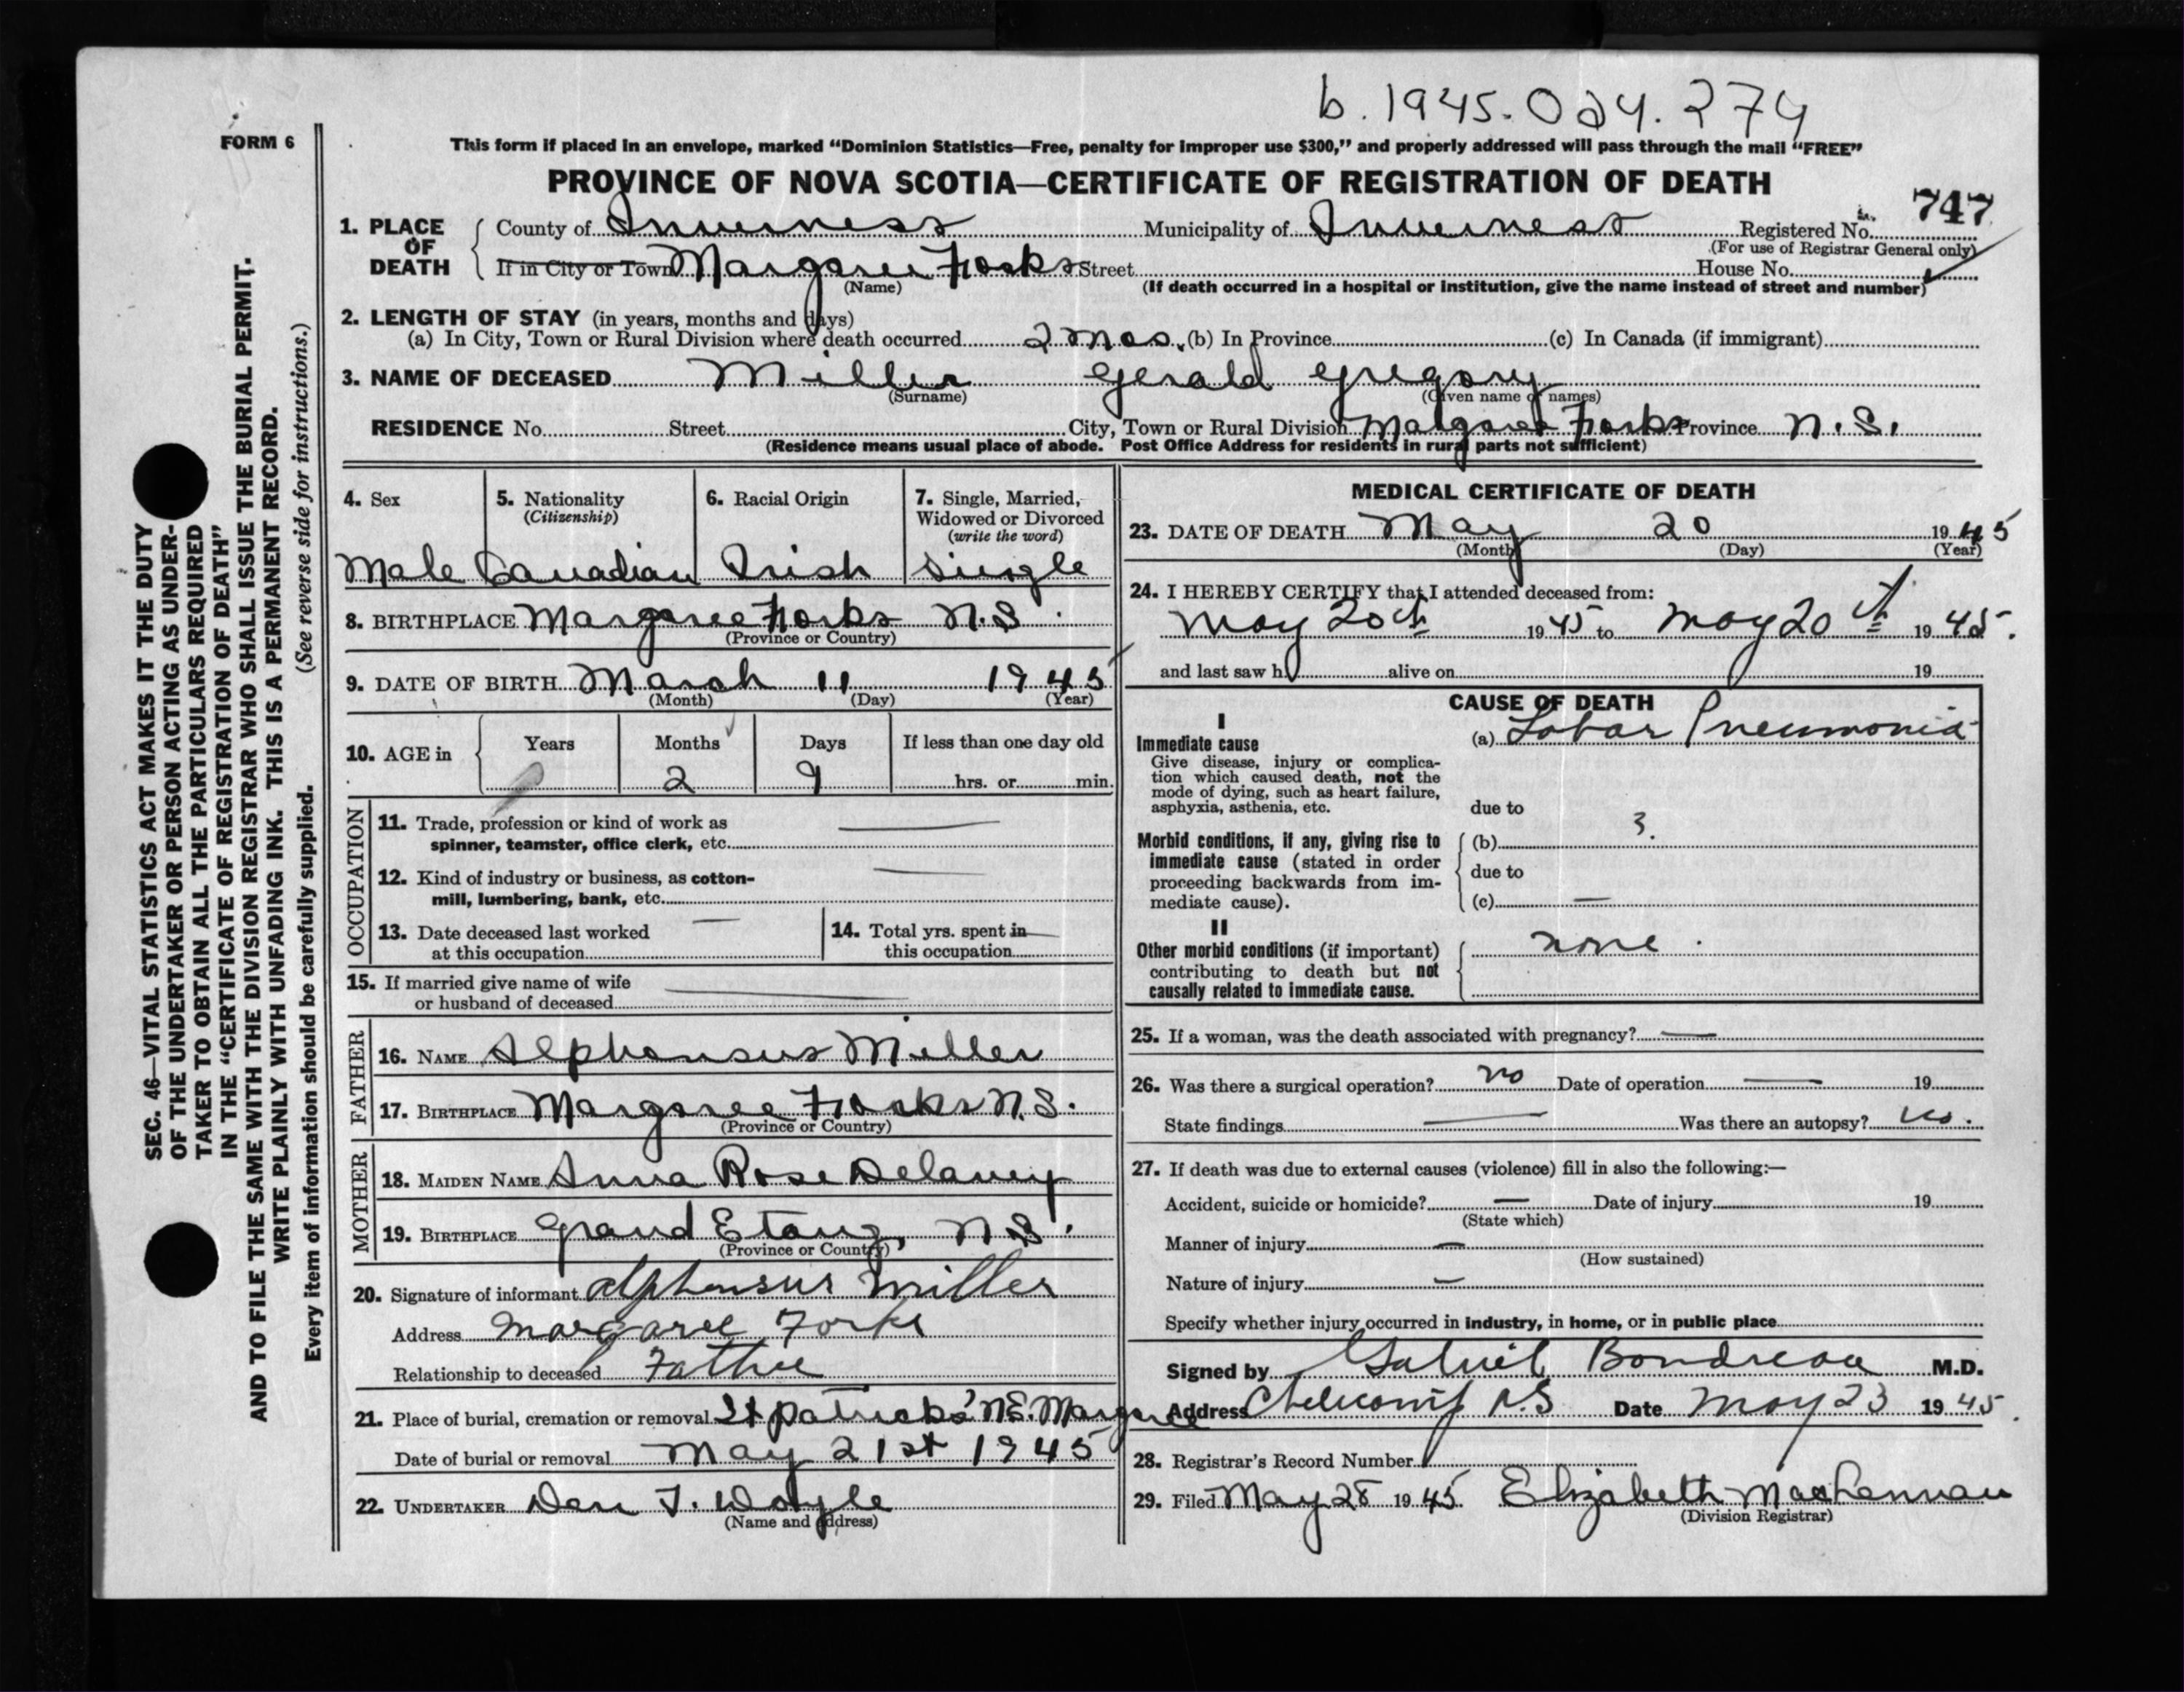 b. 1945. 024. 274
FORM 6
This form if placed in an envelope, marked “Dominion Statistics—Free, penalty for improper use $300,” and properly addressed will pass through the mail “FREE”
PROVINCE OF NOVA SCOTIA—CERTIFICATE OF REGISTRATION OF DEATH
747
1. PLACE OF DEATH
County of Inverness Municipality of Inverness Registered No.
(For use of Registrar General only)
If in City or Town Margaree Forks Street House No.
(Name) (If death occurred in a hospital or institution, give the name instead of street and number)
2. LENGTH OF STAY (in years, months and days)
(a) In City, Town or Rural Division where death occurred 2 mos. (b) In Province (c) In Canada (if immigrant)
3. NAME OF DECEASED Miller Gerald Gregory
(Surname) (Given name or names)
RESIDENCE No. Street City, Town or Rural Division Margaree Forks Province N.S.
(Residence means usual place of abode. Post Office Address for residents in rural parts not sufficient)
4. Sex 5. Nationality (Citizenship) 6. Racial Origin 7. Single, Married, Widowed or Divorced (write the word)
Male Canadian Irish Single
8. BIRTHPLACE Margaree Forks N.S.
(Province or Country)
9. DATE OF BIRTH March 11 1945
(Month) (Day) (Year)
10. AGE in Years Months Days If less than one day old
2 9 hrs. or min.
OCCUPATION
11. Trade, profession or kind of work as
spinner, teamster, office clerk, etc.
12. Kind of industry or business, as cotton-
mill, lumbering, bank, etc.
13. Date deceased last worked
at this occupation
14. Total yrs. spent in
this occupation
15. If married give name of wife
or husband of deceased
FATHER
16. NAME Alphonsus Miller
17. BIRTHPLACE Margaree Forks N.S.
(Province or Country)
MOTHER
18. MAIDEN NAME Anna Rose Delaney
19. BIRTHPLACE Grand Etang, N.S.
(Province or Country)
20. Signature of informant Alphonsus Miller
Address Margaree Forks
Relationship to deceased Father
21. Place of burial, cremation or removal St Patricks' N.E. Margaree
Date of burial or removal May 21st 1945
22. UNDERTAKER Dan J. Doyle
(Name and address)
MEDICAL CERTIFICATE OF DEATH
23. DATE OF DEATH May 20 1945
(Month) (Day) (Year)
24. I HEREBY CERTIFY that I attended deceased from:
May 20th 1945 to May 20th 1945.
and last saw h alive on 19
CAUSE OF DEATH
I
Immediate cause (a) Lobar Pneumonia
Give disease, injury or complica-
tion which caused death, not the
mode of dying, such as heart failure,
asphyxia, asthenia, etc. due to
3.
Morbid conditions, if any, giving rise to (b)
immediate cause (stated in order
proceeding backwards from im- due to
mediate cause). (c)
II
none.
Other morbid conditions (if important)
contributing to death but not
causally related to immediate cause.
25. If a woman, was the death associated with pregnancy?
26. Was there a surgical operation? no Date of operation 19
State findings Was there an autopsy? no.
27. If death was due to external causes (violence) fill in also the following:—
Accident, suicide or homicide? Date of injury 19
(State which)
Manner of injury
(How sustained)
Nature of injury
Specify whether injury occurred in industry, in home, or in public place
Signed by Gabriel Boudreau M.D.
Address Cheticamp N.S Date May 23 1945.
28. Registrar's Record Number
29. Filed May 28 1945. Elizabeth MacLennan
(Division Registrar)
SEC. 46—VITAL STATISTICS ACT MAKES IT THE DUTY
OF THE UNDERTAKER OR PERSON ACTING AS UNDER-
TAKER TO OBTAIN ALL THE PARTICULARS REQUIRED
IN THE “CERTIFICATE OF REGISTRATION OF DEATH”
AND TO FILE THE SAME WITH THE DIVISION REGISTRAR WHO SHALL ISSUE THE BURIAL PERMIT.
WRITE PLAINLY WITH UNFADING INK. THIS IS A PERMANENT RECORD.
Every item of information should be carefully supplied. (See reverse side for instructions.)